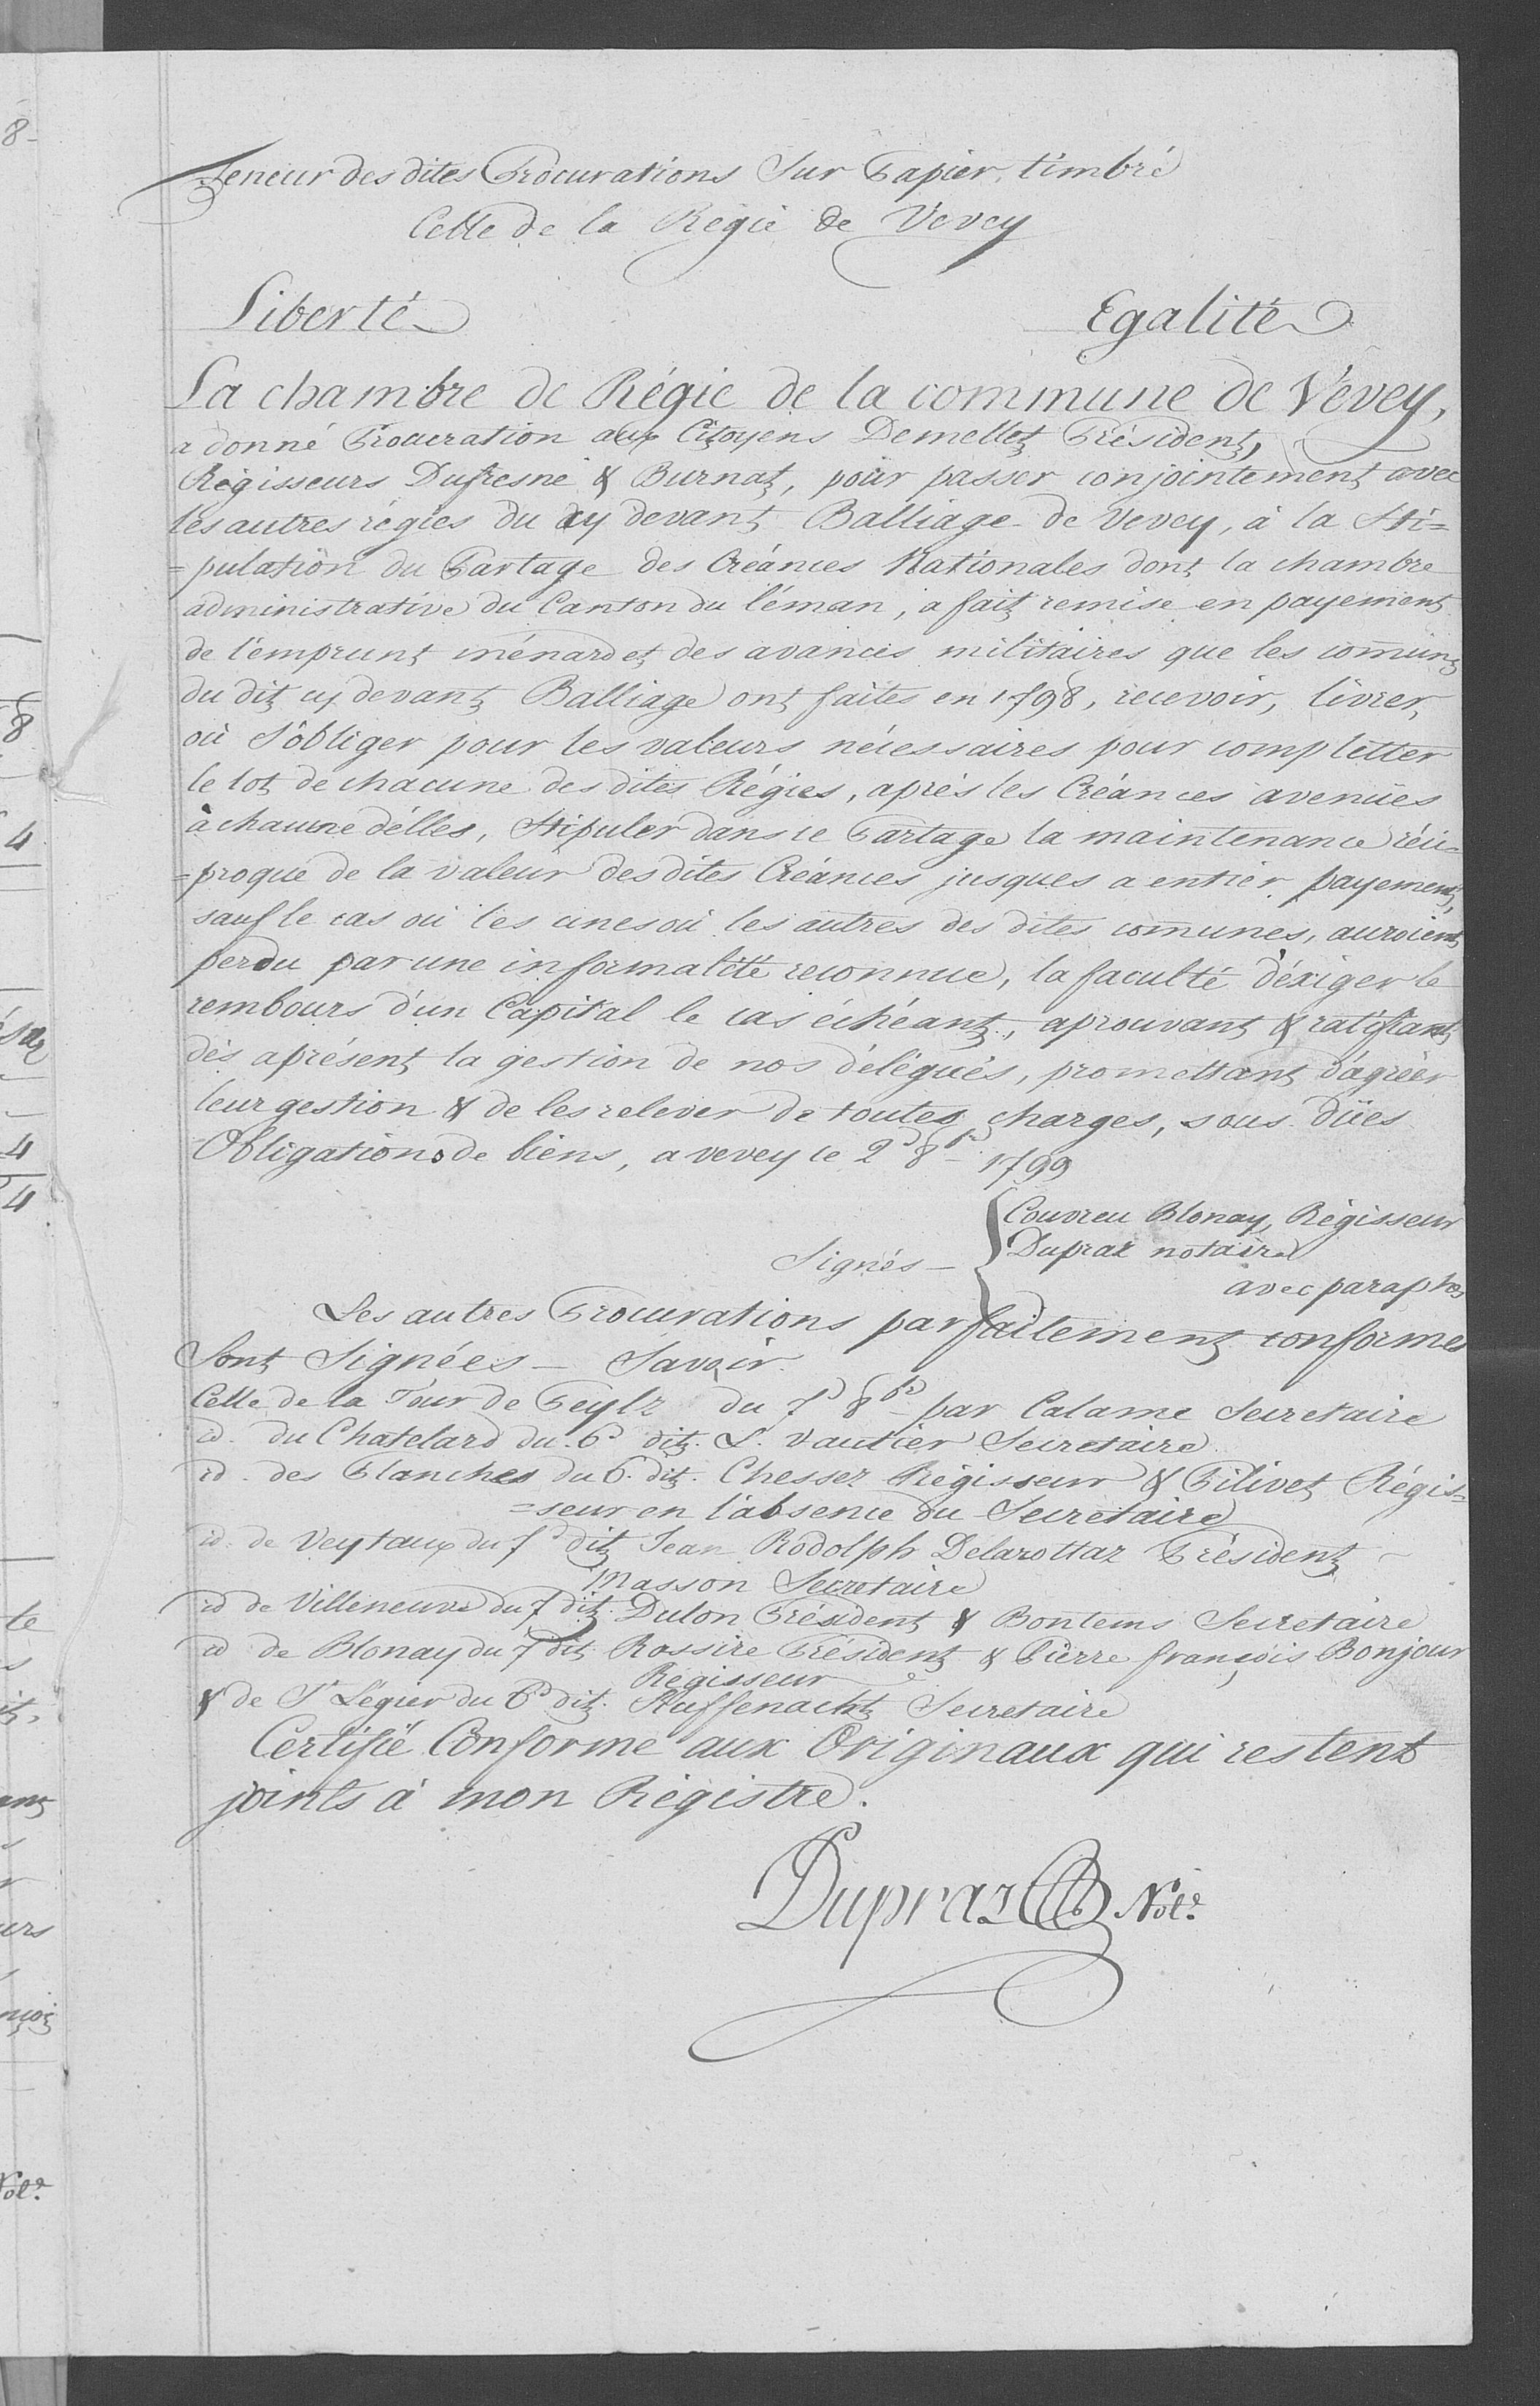 Teneur des dites Procurations Sur Papier timbré
Celle de la Régie de Vevey
Liberté Egalité
La chambre de Régie de la commune de Vévey,
a donné Procuration aux Citoyens Demellet Président,
Régisseurs Dufresne & Burnat, pour passer conjointement avec
les autres régies du cy devant Balliage de Vevey, à la Sti=
=pulation du Partage des Créances Nationales dont la chambre
administrative du Canton du léman, a fait remise en payement
de l'emprunt ménard et des avances militaires que les comunes
du dit cy devant Balliage ont faites en 1798, recevoir, livrer,
où s'obliger pour les valeurs nécessaires pour completter
le lot de chacune des dites Régies, après les Créances avenües
à chacune d'élles, Stipuler dans ce Partage la maintenance réci=
=proque de la valeur des dites Créances jusques a entier payement,
sauf le cas où les unes où les autres des dites comunes, auroient
perdu par une informalitté reconnue, la faculté d'éxiger le
rembours d'un Capital le cas échéant, aprouvant & ratifiant
dès aprésent la gestion de nos délégués, promettant d'agréer
leur gestion & de les relever de toutes charges, sous dües
Obligations de biens, a vevey le 2d 8bre 1799
Signés - Couvreu Blonay, Régisseur
Dupraz notaire
avec paraphes
Les autres Procurations parfaitement conformes
Sont Signées - Savoir
Celle de la Tour de Peylz du 7d 8bre par Calame Secretaire
id. du Chatelard du 6d dit. L. Vautier Secretaire
id. des Planches du 6. dit. Chessez Régisseur & Pilivet Régis=
=seur en l'absence du Secretaire
id. de Veytaux du 7d dit Jean Rodolph Delarottaz Président
Masson Secretaire
id de Villeneuve du 7 dit. Dulon Président & Bontems Secretaire
id de Blonay du 7 dit Rossire Président & Pierre françois Bonjour
Régisseur
& de St Légier du 6d dit. Secretaire
Certifié Conforme aux Originaux qui restent
joints à mon Régistre.
Dupraz Note